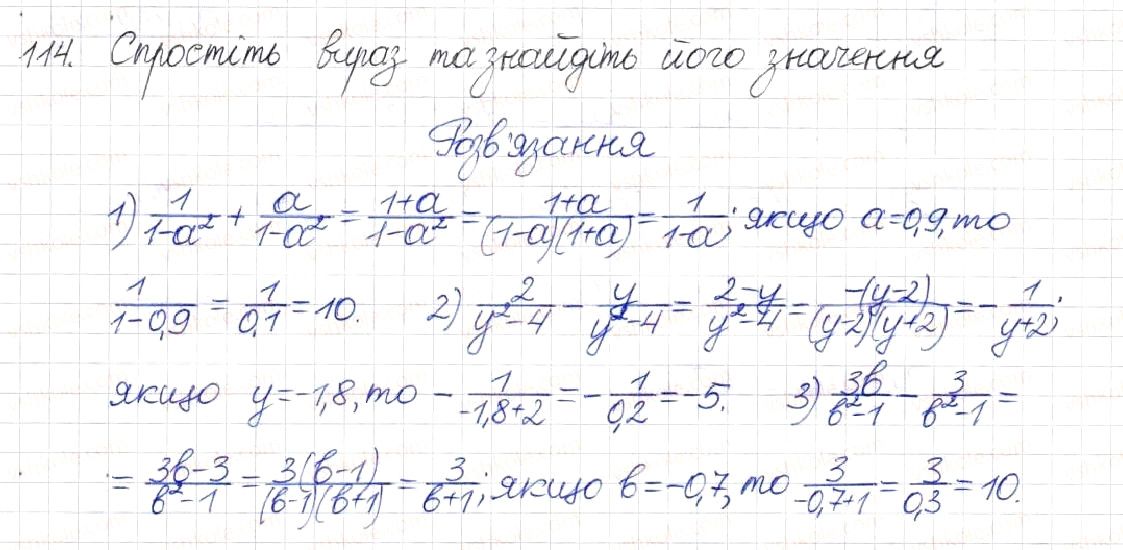 114. Спростіть вираз та знайдіть його значення
Розв'язання
1) 1/(1-a²) + a/(1-a²) = (1+a)/(1-a²) = (1+a)/((1-a)(1+a)) = 1/(1-a); якщо a=0,9, то
1/(1-0,9) = 1/0,1 = 10. 2) 2/(y²-4) - y/(y²-4) = (2-y)/(y²-4) = -(y-2)/((y-2)(y+2)) = -1/(y+2);
якщо y=-1,8, то -1/(-1,8+2) = -1/0,2 = -5. 3) 3b/(b²-1) - 3/(b²-1) =
= (3b-3)/(b²-1) = 3(b-1)/((b-1)(b+1)) = 3/(b+1); якщо b=-0,7, то 3/(-0,7+1) = 3/0,3 = 10.